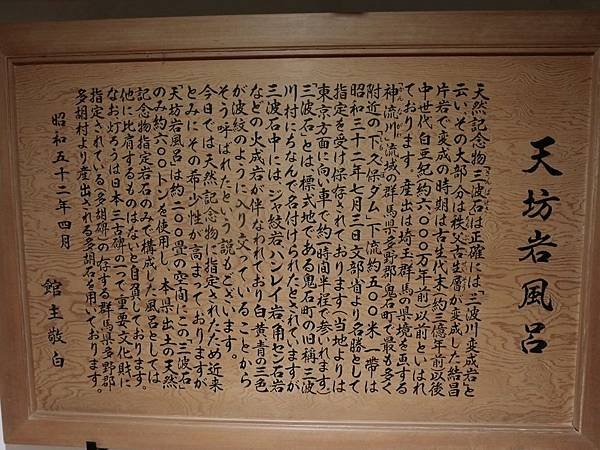 天坊岩風呂
天然記念物「三波石」は正確には「三波川変成岩と
云い、その大部分は秩父古生層が変成した結晶
片岩で変成の時期は古生代末、約三億年前以後
中世代白亜紀約六〇〇〇万年前以前といはれ
ております。産出は埼玉、群馬の県境を画する
神流川流域の群馬県多野郡鬼石町で最も多く
附近の「下久保ダム」下流約五〇〇米一帯は
昭和三十二年七月三日文部省より名勝として
指定を受け保存されております(当地よりは
東京方面に向い車で約一時間半程で参れます)
「三波石」とは標式地である鬼石町の旧称「三波
川村」にちなんで名付けられたとされていますが
三波石中には、ジャ紋岩、ハンレイ岩、角セン石岩
などの火成岩が伴なわれており白、黄、青の三色
が波紋のように入り交っていることから
そう呼ばれたという説もございます。
今日では天然記念物に指定されたため近来
とみにその希少性が高まっておりますが
天坊岩風呂は約二〇〇畳の空間にこの「三波石」
のみ約六〇〇トンを使用し、本県出土の天然
記念物指定岩石のみで構成した風呂としては
他に比肩するものはないと自負しております。
なお灯ろうは日本三古碑の一つで重要文化財に
指定されている「多胡碑」の存する群馬県多野郡
多胡村より産出される多胡石を用いております。
昭和五十二年四月
館主敬白